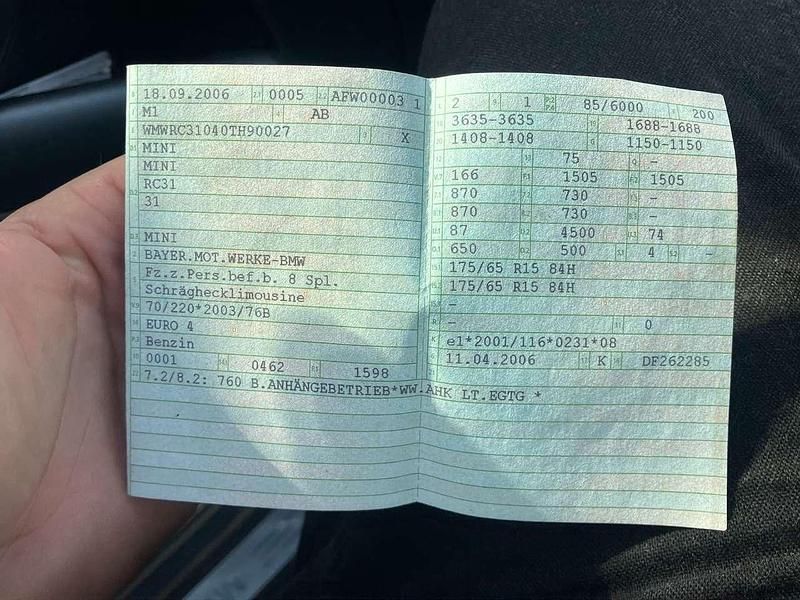 18.09.2006 0005 AFW00003 1
M1 AB
WMWRC31040TH90027 X
MINI
MINI
RC31
31
MINI
BAYER.MOT.WERKE-BMW
Fz.z.Pers.bef.b. 8 Spl.
Schräghecklimousine
70/220*2003/76B
EURO 4
Benzin
0001 0462 1598
7.2/8.2: 760 B.ANHÄNGEBETRIEB*WW.AHK LT.EGTG *
2 1 85/6000 200
3635-3635 1688-1688
1408-1408 1150-1150
75 -
166 1505 1505
870 730 -
870 730 -
87 4500 74
650 500 4 -
175/65 R15 84H
175/65 R15 84H
-
- 0
e1*2001/116*0231*08
11.04.2006 K DF262285